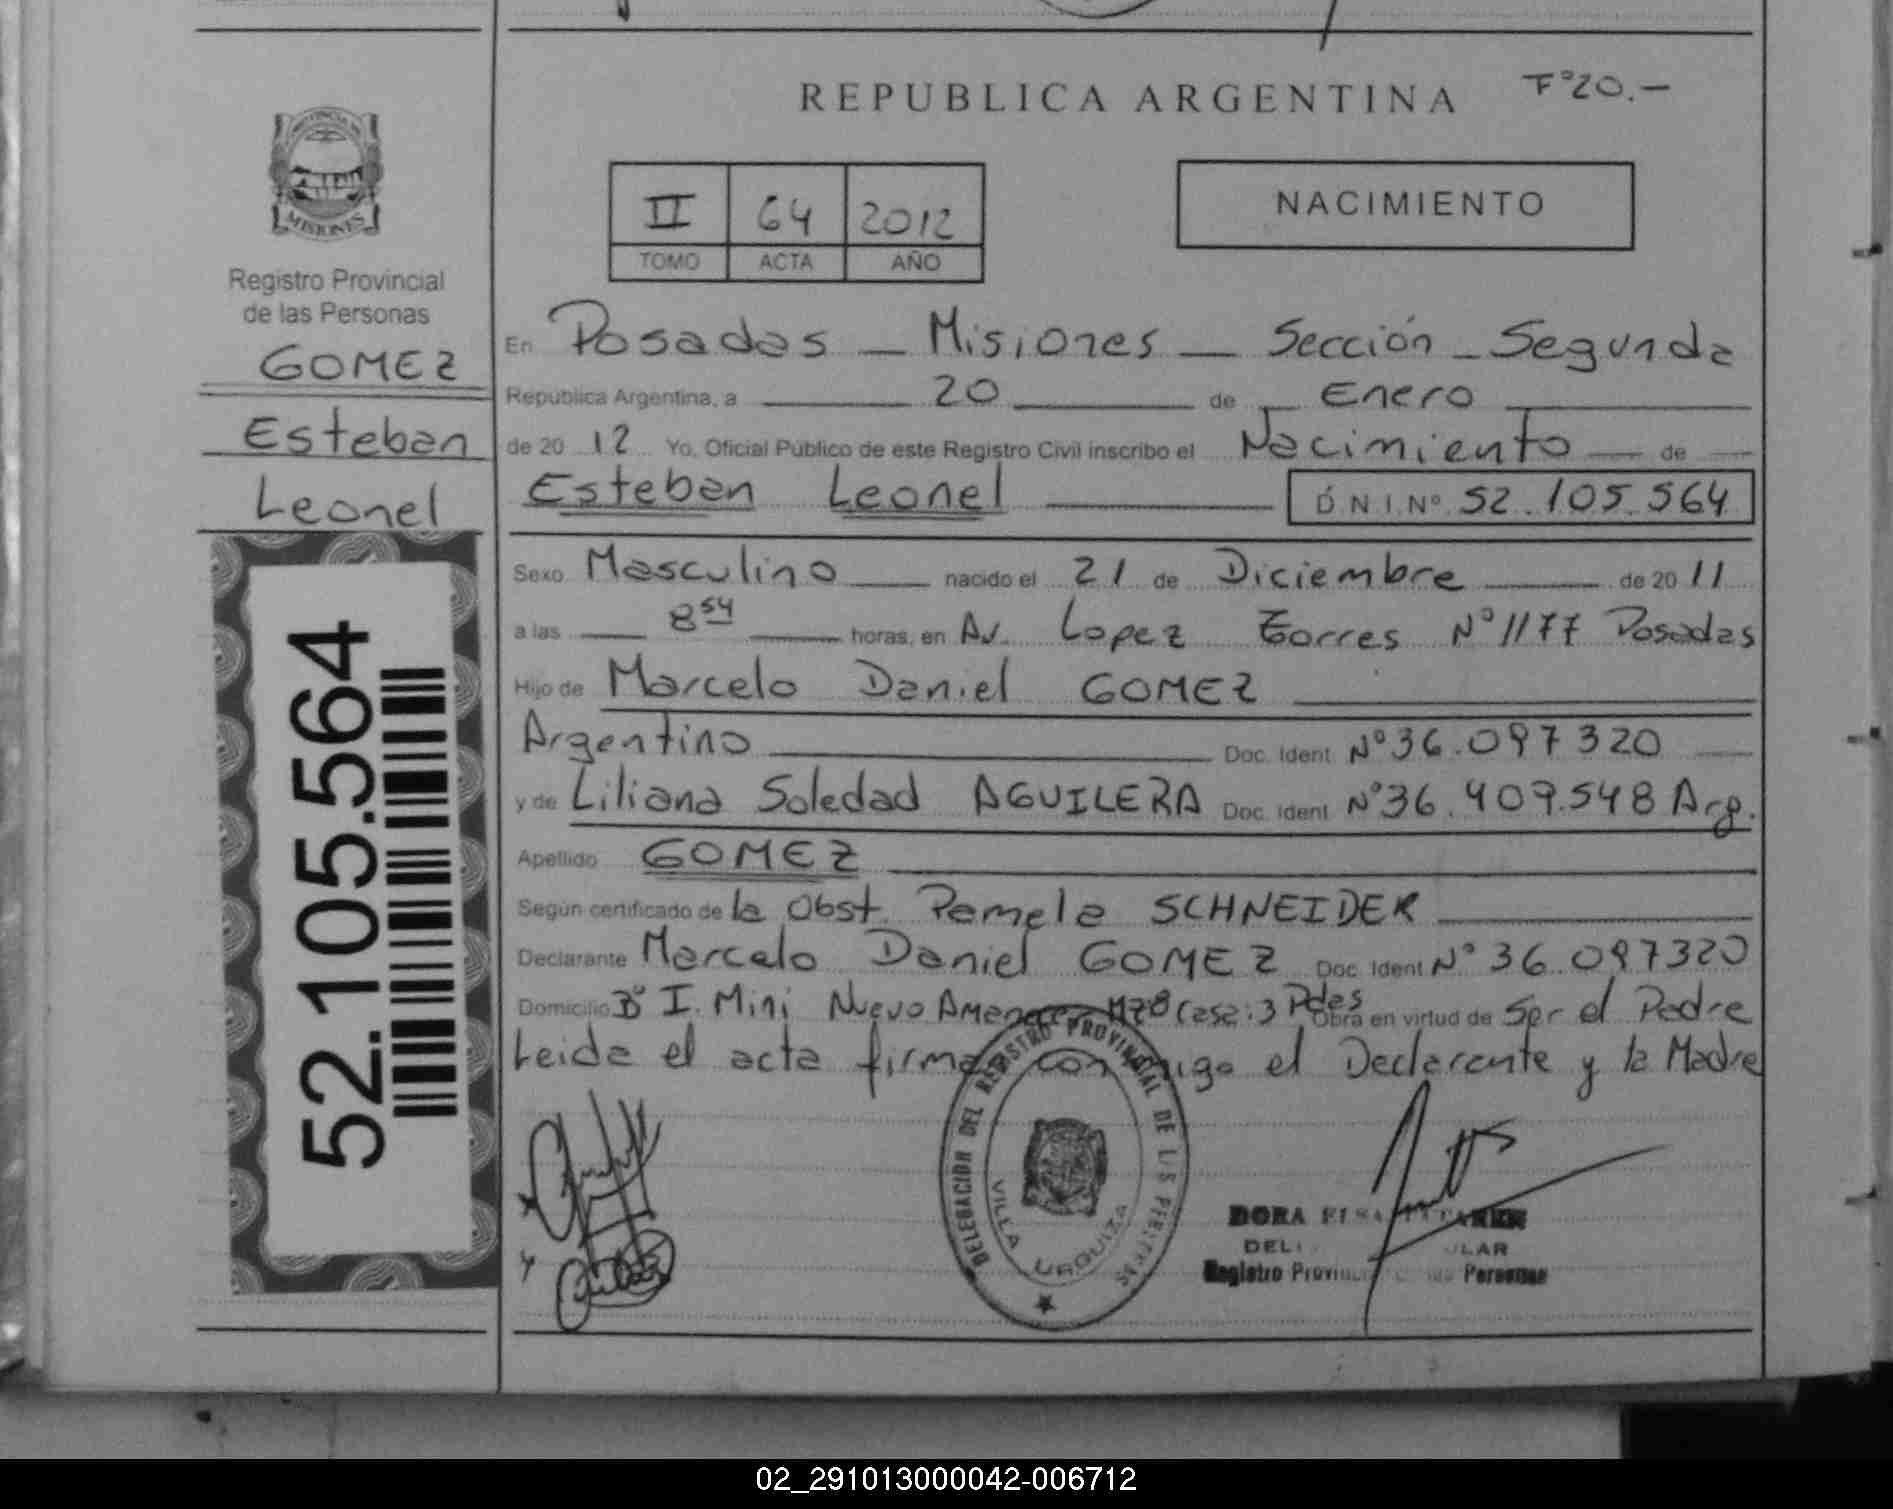 REPUBLICA ARGENTINA
F° 20.-
PROVINCIA DE
MISIONES
Registro Provincial
de las Personas
GOMEZ
Esteban
Leonel
52.105.564
II 64 2012
TOMO ACTA AÑO
NACIMIENTO
En Posadas - Misiones - Sección - Segunda
Republica Argentina, a 20 de Enero
de 20 12 Yo, Oficial Público de este Registro Civil inscribo el Nacimiento de
Esteban Leonel D.N.I.Nº 52.105.564
Sexo Masculino nacido el 21 de Diciembre de 20 11
a las 8 54 horas, en Av. Lopez Torres N° 1177 Posadas
Hijo de Marcelo Daniel GOMEZ
Argentino Doc. Ident. N° 36.097320
y de Liliana Soledad AGUILERA Doc. Ident. N° 36.409.548 Arg.
Apellido GOMEZ
Según certificado de la Obst. Pamela SCHNEIDER
Declarante Marcelo Daniel GOMEZ Doc. Ident N° 36.097320
Domicilio B° I. Mini Nuevo Amanecer Mz8 Casa: 3 Pdas Obra en virtud de Ser el Padre
Leida el acta firma conmigo el Declarante y la Madre
DELEGACION DEL REGISTRO PROVINCIAL DE LAS PERSONAS
VILLA URQUIZA
DORA ELSA
Registro Provincial Personas
02_291013000042-006712